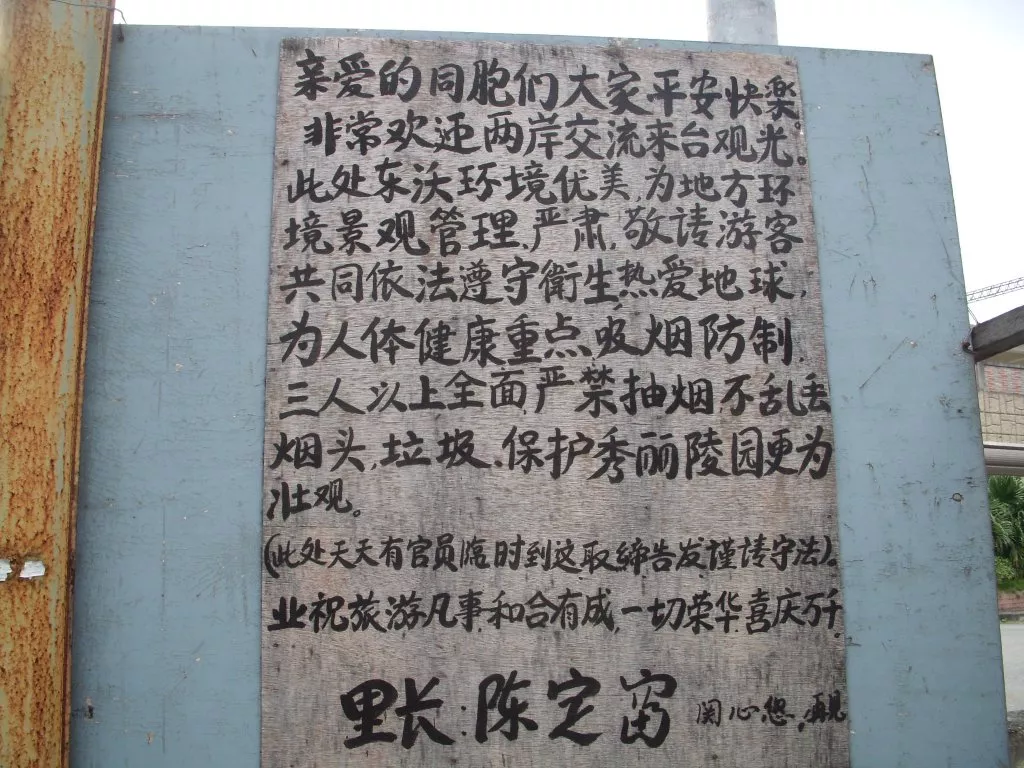 亲爱的同胞们大家平安快楽。
非常欢迎两岸交流来台观光。
此处东沃环境优美,为地方环
境景观管理,严肃,敬请游客
共同依法遵守衛生热爱地球,
为人体健康重点,吸烟防制,
三人以上全面,严禁抽烟,不乱丢
烟头,垃圾,保护秀丽陵园更为
壮观。
(此处天天有官员临时到这取缔告发谨请守法)。
业祝旅游凡事,和合有成,一切荣华,喜庆万千,
里长:陈定 关心您,再见